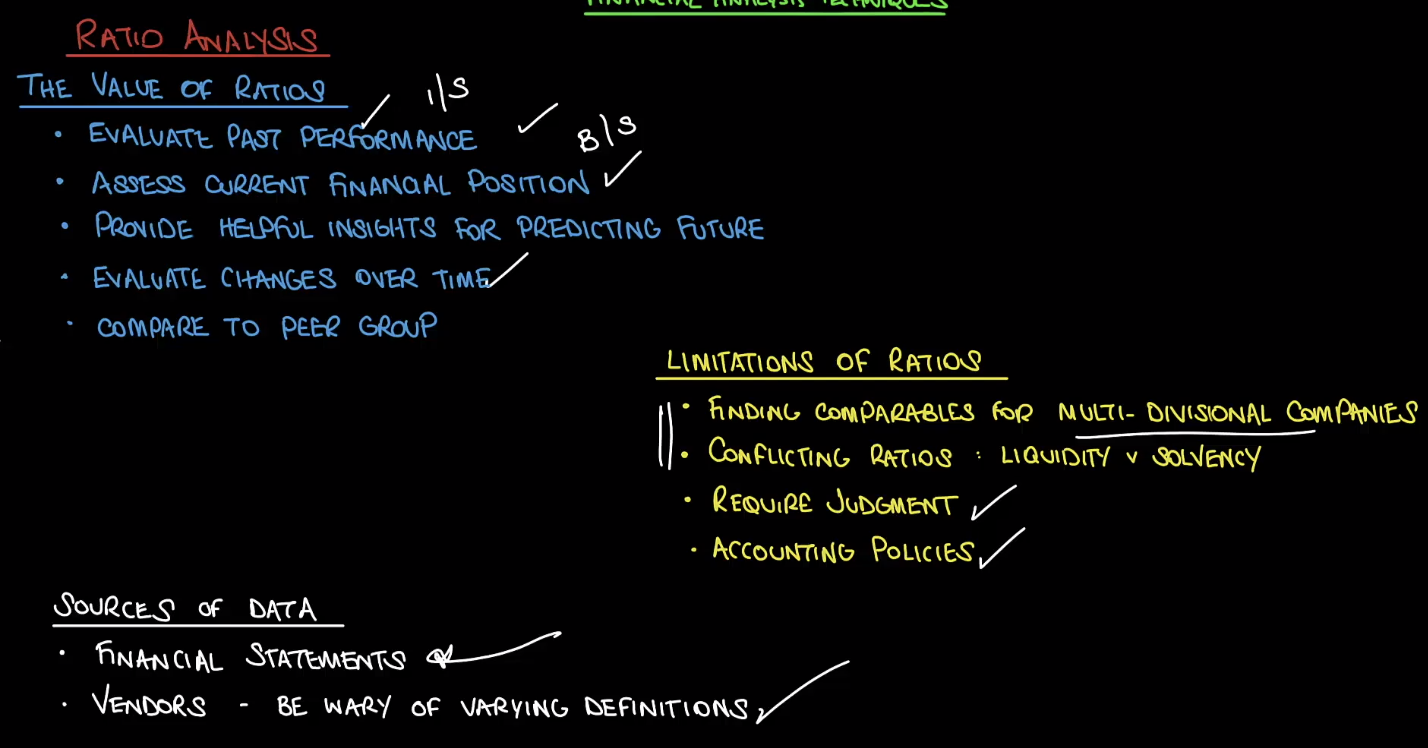 FINANCIAL ANALYSIS TECHNIQUES
RATIO ANALYSIS
THE VALUE OF RATIOS
I/S
• EVALUATE PAST PERFORMANCE
B/S
• ASSESS CURRENT FINANCIAL POSITION
• PROVIDE HELPFUL INSIGHTS FOR PREDICTING FUTURE
• EVALUATE CHANGES OVER TIME
• COMPARE TO PEER GROUP
LIMITATIONS OF RATIOS
• FINDING COMPARABLES FOR MULTI-DIVISIONAL COMPANIES
• CONFLICTING RATIOS : LIQUIDITY V SOLVENCY
• REQUIRE JUDGMENT
• ACCOUNTING POLICIES
SOURCES OF DATA
• FINANCIAL STATEMENTS
• VENDORS - BE WARY OF VARYING DEFINITIONS